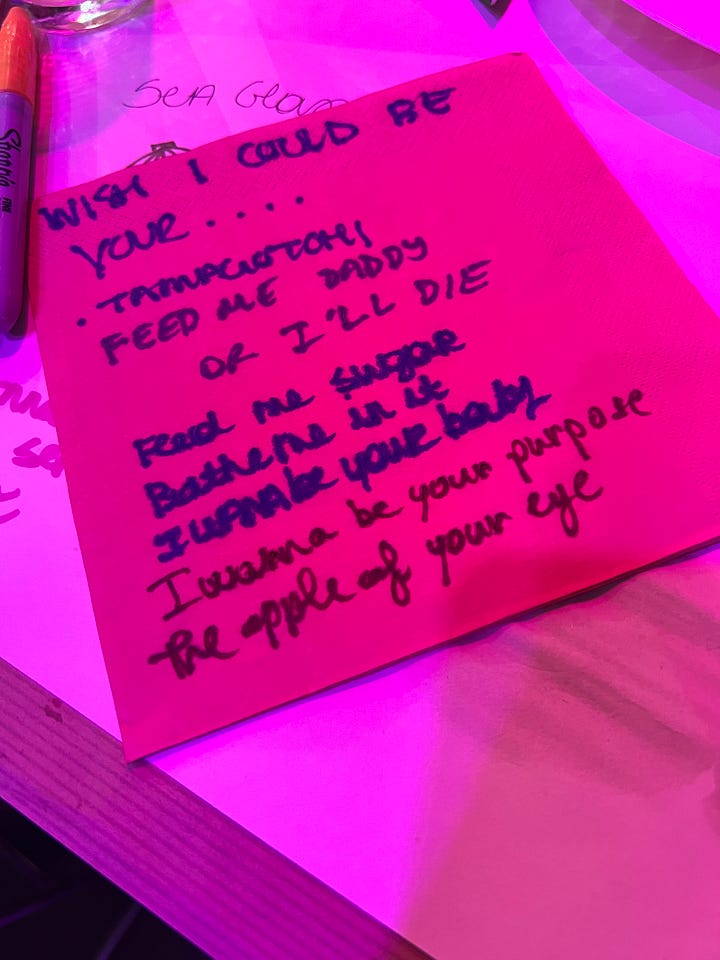 SEA Glass
Sharpie
FINE
WISH I COULD BE
YOUR....
. TAMAGUTCHI
FEED ME DADDY
OR I'LL DIE
Feed me sugar
Bathe me in it
I WANA be your baby
I wanna be your purpose
the apple of your eye